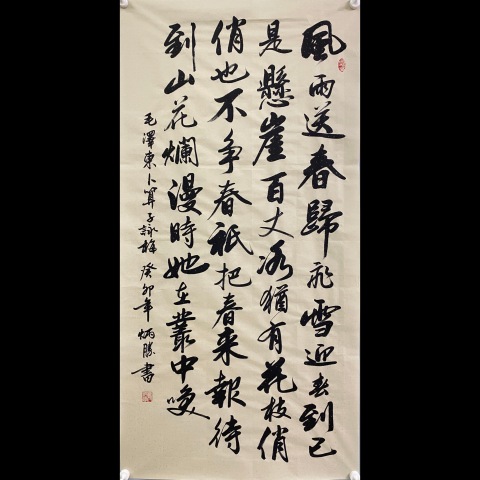 風雨送春歸飛雪迎春到已
是懸崖百丈冰猶有花枝俏
俏也不争春祇把春来報待
到山花爛漫時她在叢中咲
毛澤東卜算子詠梅 癸卯年 炳勝書